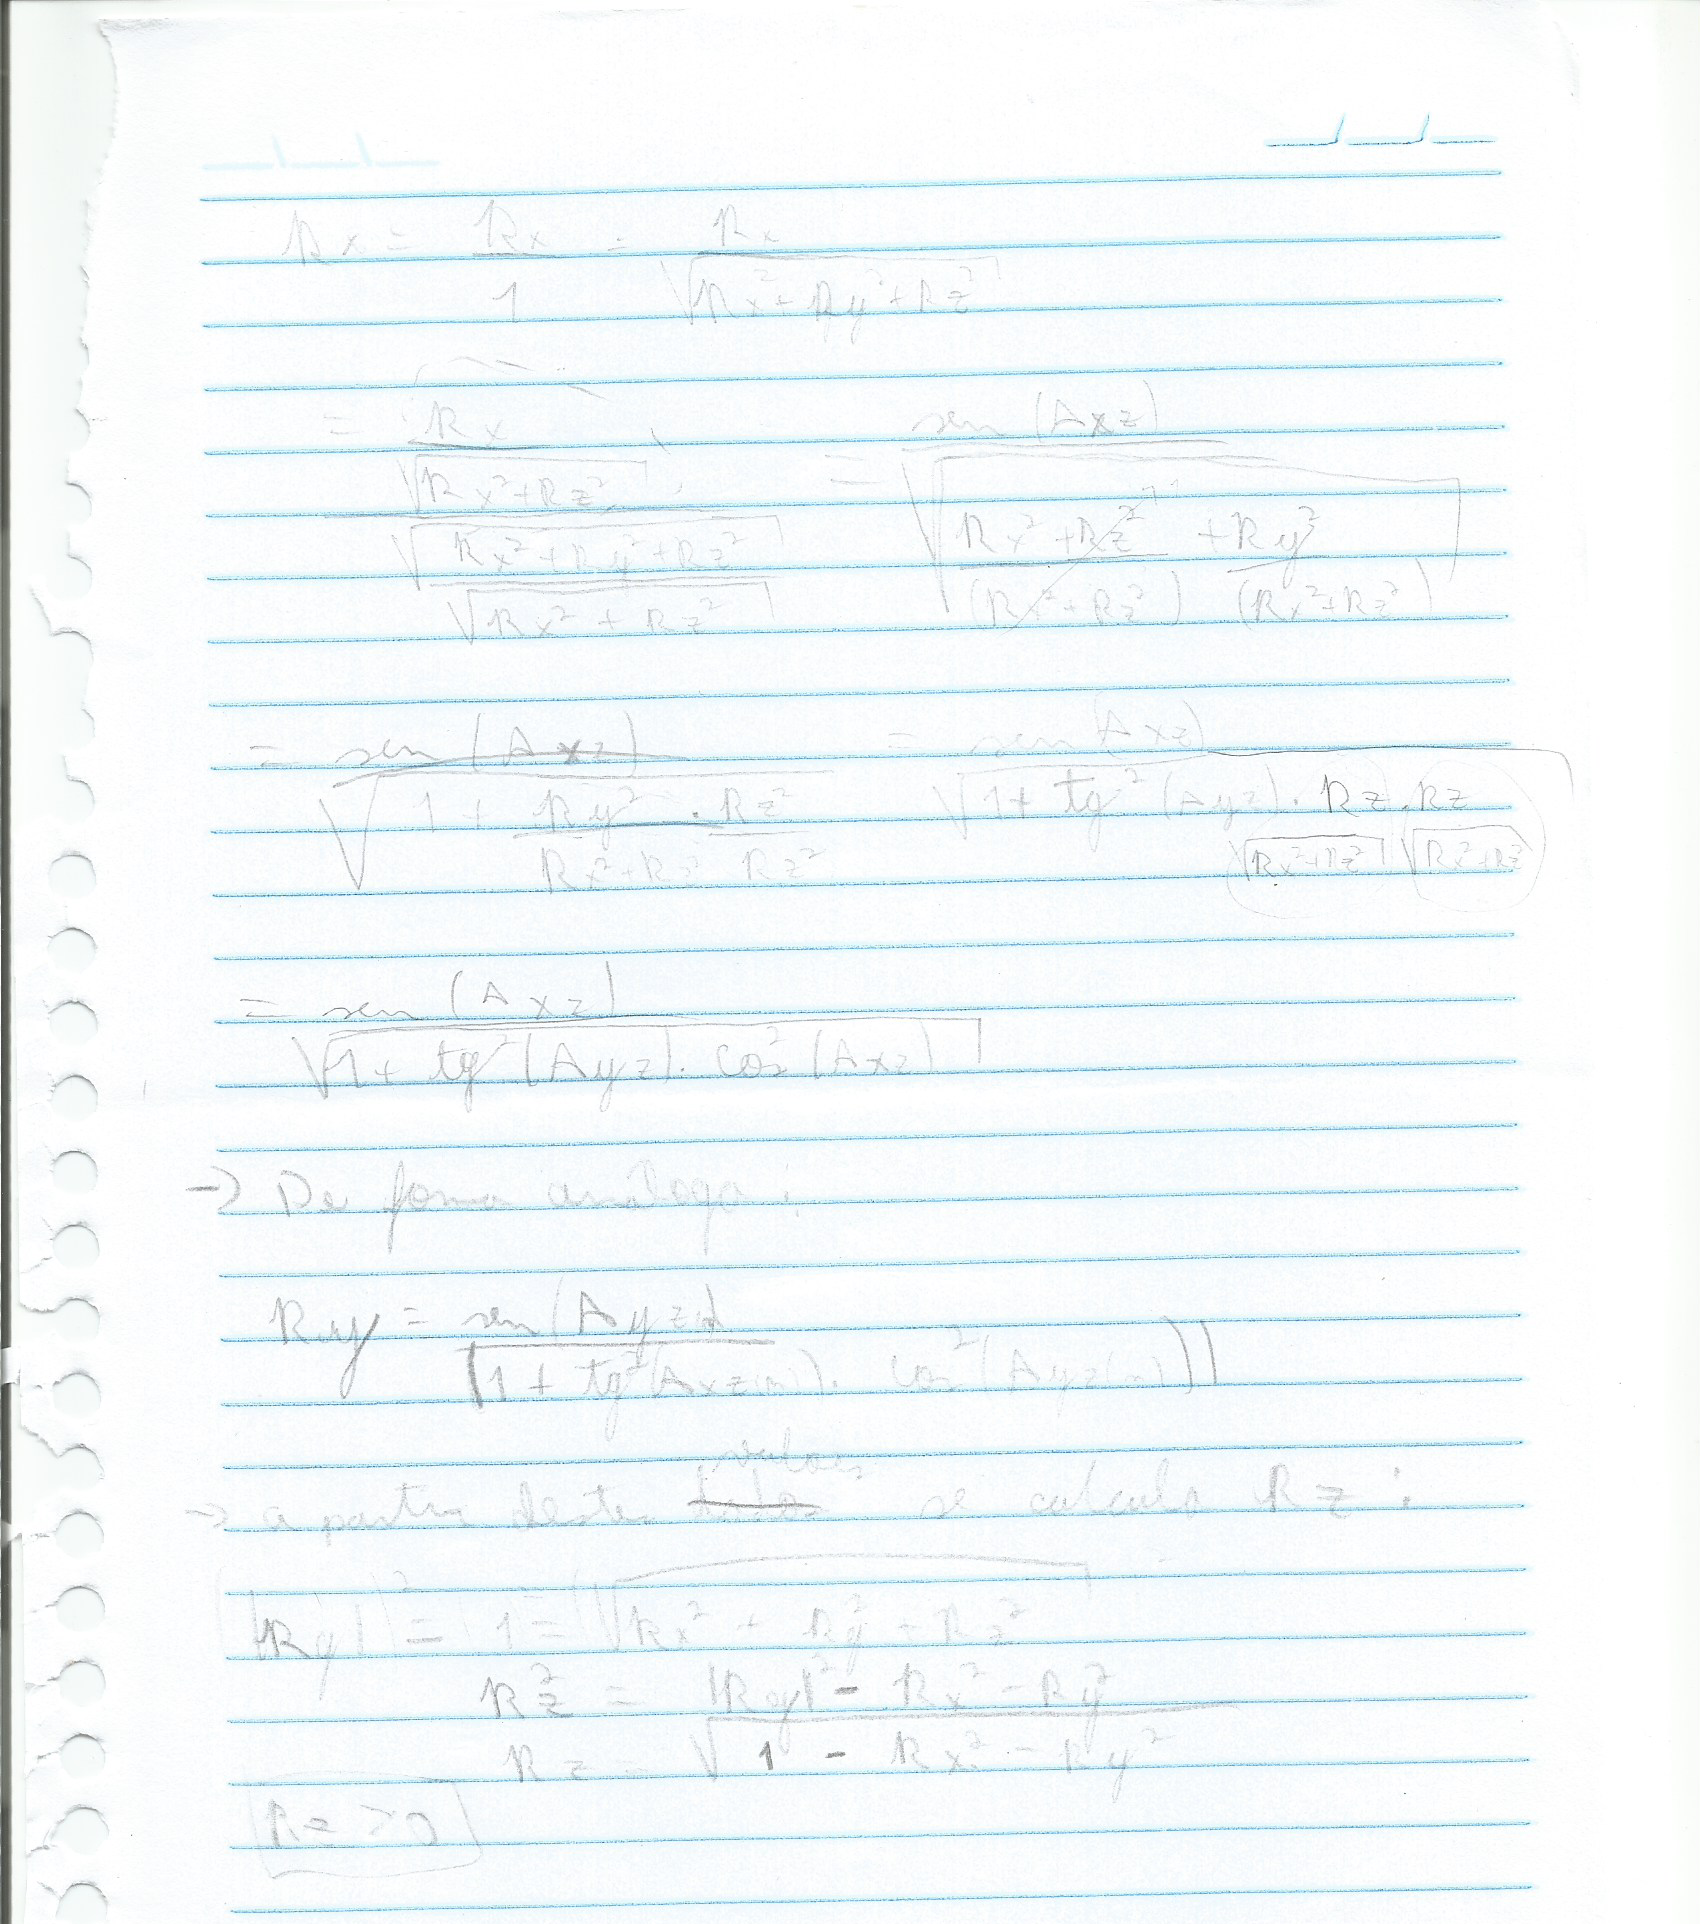 Rx = Rx/1 = Rx/√(Rx²+Ry²+Rz²)
= (Rx/√(Rx²+Rz²))/(√(Rx²+Ry²+Rz²)/√(Rx²+Rz²)) = sen(Axz)/√((Rx²+Rz²)/(Rx²+Rz²) + Ry²/(Rx²+Rz²))
= sen(Axz)/√(1 + Ry²/(Rx²+Rz²) · Rz²/Rz²) = sen(Axz)/√(1 + tg²(Ayz) · Rz/√(Rx²+Rz²) · Rz/√(Rx²+Rz²))
= sen(Axz)/√(1 + tg²(Ayz) · cos²(Axz))
→ De forma análoga:
Ry = sen(Ayz)/√(1 + tg²(Axz(n)) · cos²(Ayz(n)))
→ a partir destes valores se calcula Rz:
|Ry|² = 1 = √(Rx² + Ry² + Rz²)
Rz² = |Ry|² - Rx² - Ry²
Rz = √(1 - Rx² - Ry²)
Rz > 0